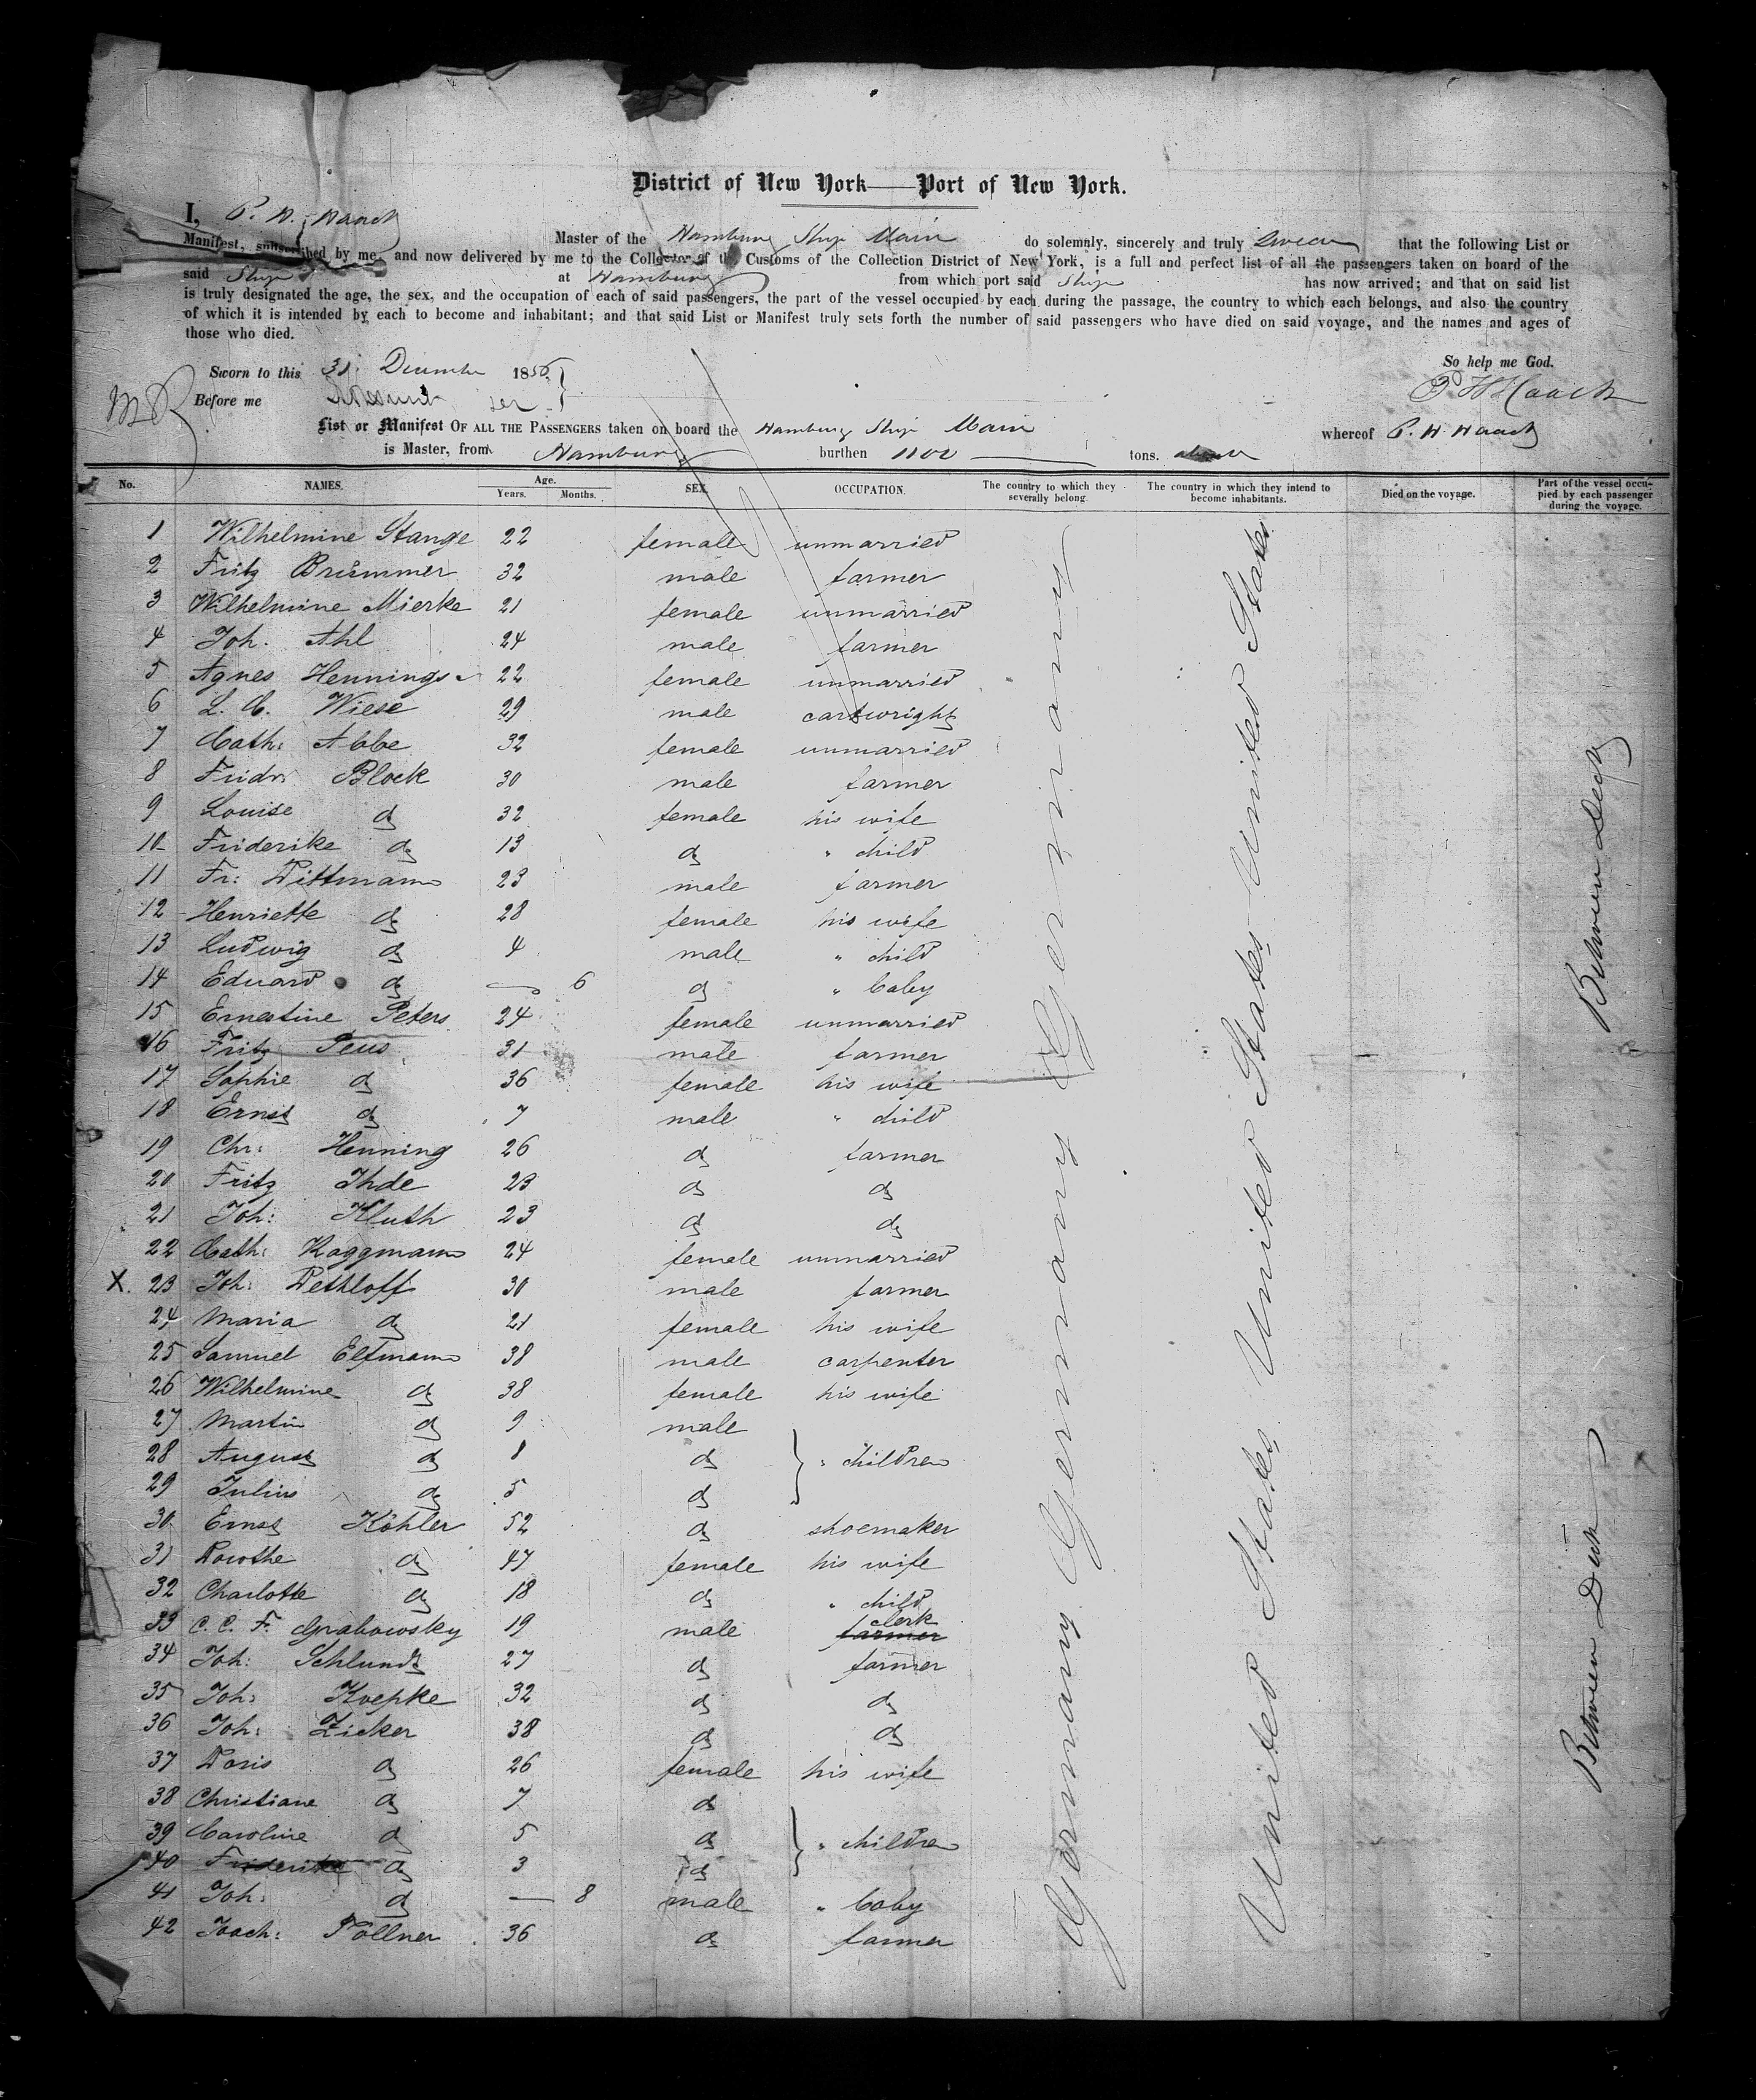 District of New York—Port of New York.
I, P. H. Haack
Master of the Hamburg Ship Main do solemnly, sincerely and truly swear that the following List or
Manifest, subscribed by me, and now delivered by me to the Collector of the Customs of the Collection District of New York, is a full and perfect list of all the passengers taken on board of the
said Ship at Hamburg from which port said Ship has now arrived; and that on said list
is truly designated the age, the sex, and the occupation of each of said passengers, the part of the vessel occupied by each during the passage, the country to which each belongs, and also the country
of which it is intended by each to become and inhabitant; and that said List or Manifest truly sets forth the number of said passengers who have died on said voyage, and the names and ages of
those who died.
So help me God.
Sworn to this 31. December 1856
P H Haack
Before me
List or Manifest OF ALL THE PASSENGERS taken on board the Hamburg Ship Main whereof P. H. Haack
is Master, from Hamburg burthen tons.
No. NAMES. Age. Years. Months. SEX. OCCUPATION. The country to which they severally belong. The country in which they intend to become inhabitants. Died on the voyage. Part of the vessel occupied by each passenger during the voyage.
1 Wilhelmine Stange 22 female unmarried
2 Fritz Brümmer 32 male farmer
3 Wilhelmine Mierke 21 female unmarried
4 Joh. Ahl 24 male farmer
5 Agnes Hennings 22 female unmarried
6 L. C. Wiese 29 male cartwright
7 Cath: Abbe 32 female unmarried
8 Fridr: Block 30 male farmer
9 Louise do 32 female his wife
10 Friderike do 13 do " child
11 Fr: Dittmann 23 male farmer
12 Henriette do 28 female his wife
13 Ludwig do 4 male " child
14 Eduard do — 6 do " baby
15 Ernestine Peters 24 female unmarried
16 Fritz Peus 31 male farmer
17 Sophie do 36 female his wife
18 Ernst do 7 male " child
19 Chr: Henning 26 do farmer
20 Fritz Ihde 23 do do
21 Joh: Kluth 23 do do
22 Cath: Koggmann 24 female unmarried
X. 23 Joh: Dethloff 30 male farmer
24 Maria do 21 female his wife
25 Samuel Elfmann 38 male carpenter
26 Wilhelmine do 38 female his wife
27 Martin do 9 male
28 August do 8 do " children
29 Julius do 5 do
30 Ernst Köhler 52 do shoemaker
31 Dorothe do 47 female his wife
32 Charlotte do 18 do " child
33 C. C. F. Grabowsky 19 male farmer clerk
34 Joh: Schlundt 27 do farmer
35 Joh: Koepke 32 do do
36 Joh: Zicker 38 do do
37 Doris do 26 female his wife
38 Christiane do 7 do
39 Caroline do 5 do " children
40 Friderike do 3 do
41 Joh: do — 8 male " baby
42 Joach: Töllner 36 do farmer
Germany Germany Germany
United States United States United States
Between Deck
Between Deck